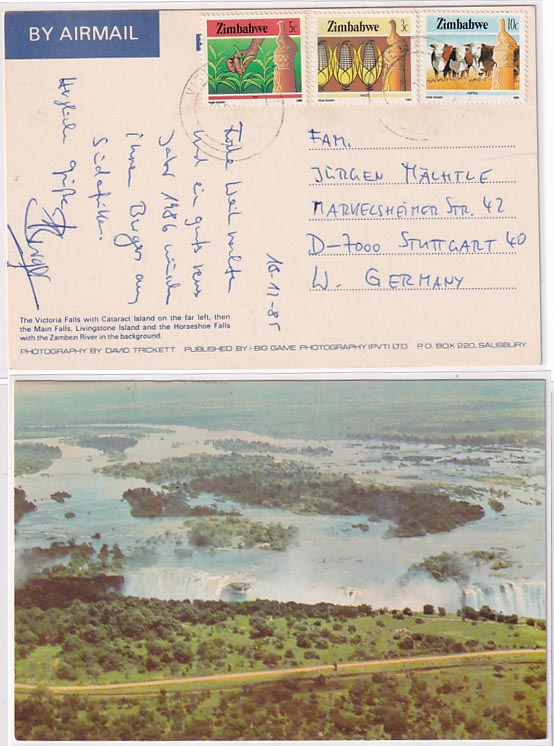 BY AIRMAIL
Zimbabwe 5c
Zimbabwe 3c
Zimbabwe 10c
CATTLE
10.12.85
Frohe Weihnachten
und ein gutes neues
Jahr 1986 wünschen
Ihnen Burger aus
Südafrika.
Herzliche Grüße
FAM.
JÜRGEN MÄCHTLE
MARVELSHEIMER STR. 42
D-7000 STUTTGART 40
W. GERMANY
The Victoria Falls with Cataract Island on the far left, then
the Main Falls, Livingstone Island and the Horseshoe Falls
with the Zambezi River in the background.
PHOTOGRAPHY BY DAVID TRICKETT. PUBLISHED BY:- BIG GAME PHOTOGRAPHY (PVT) LTD. P.O. BOX 220, SALISBURY.